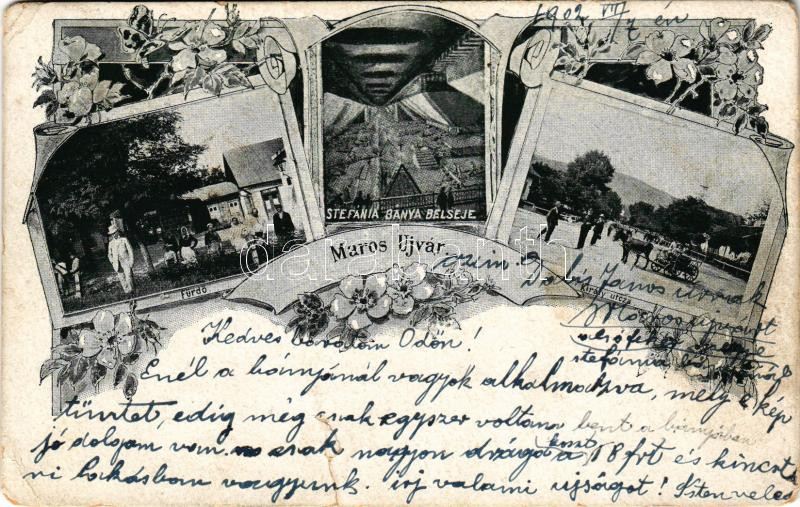 1902 VII/7 én
STEFÁNIA BÁNYA BELSEJE
Maros Ujvár
Fürdő
Király utcza
czim Dobis János urnak
Marosujvárt
alsófehér megye
stefánia
Kedves barátom Ödön!
Enél a bányánál vagyok alkalmazva, mely e kép
tüntet, edig még csak egyszer voltam bent a bányában
jó dolgom van, csak nagyon drága a koszt 18 frt és kincst
ri lakásban vagyunk. irj valami ujságot! Isten veled
darabanth